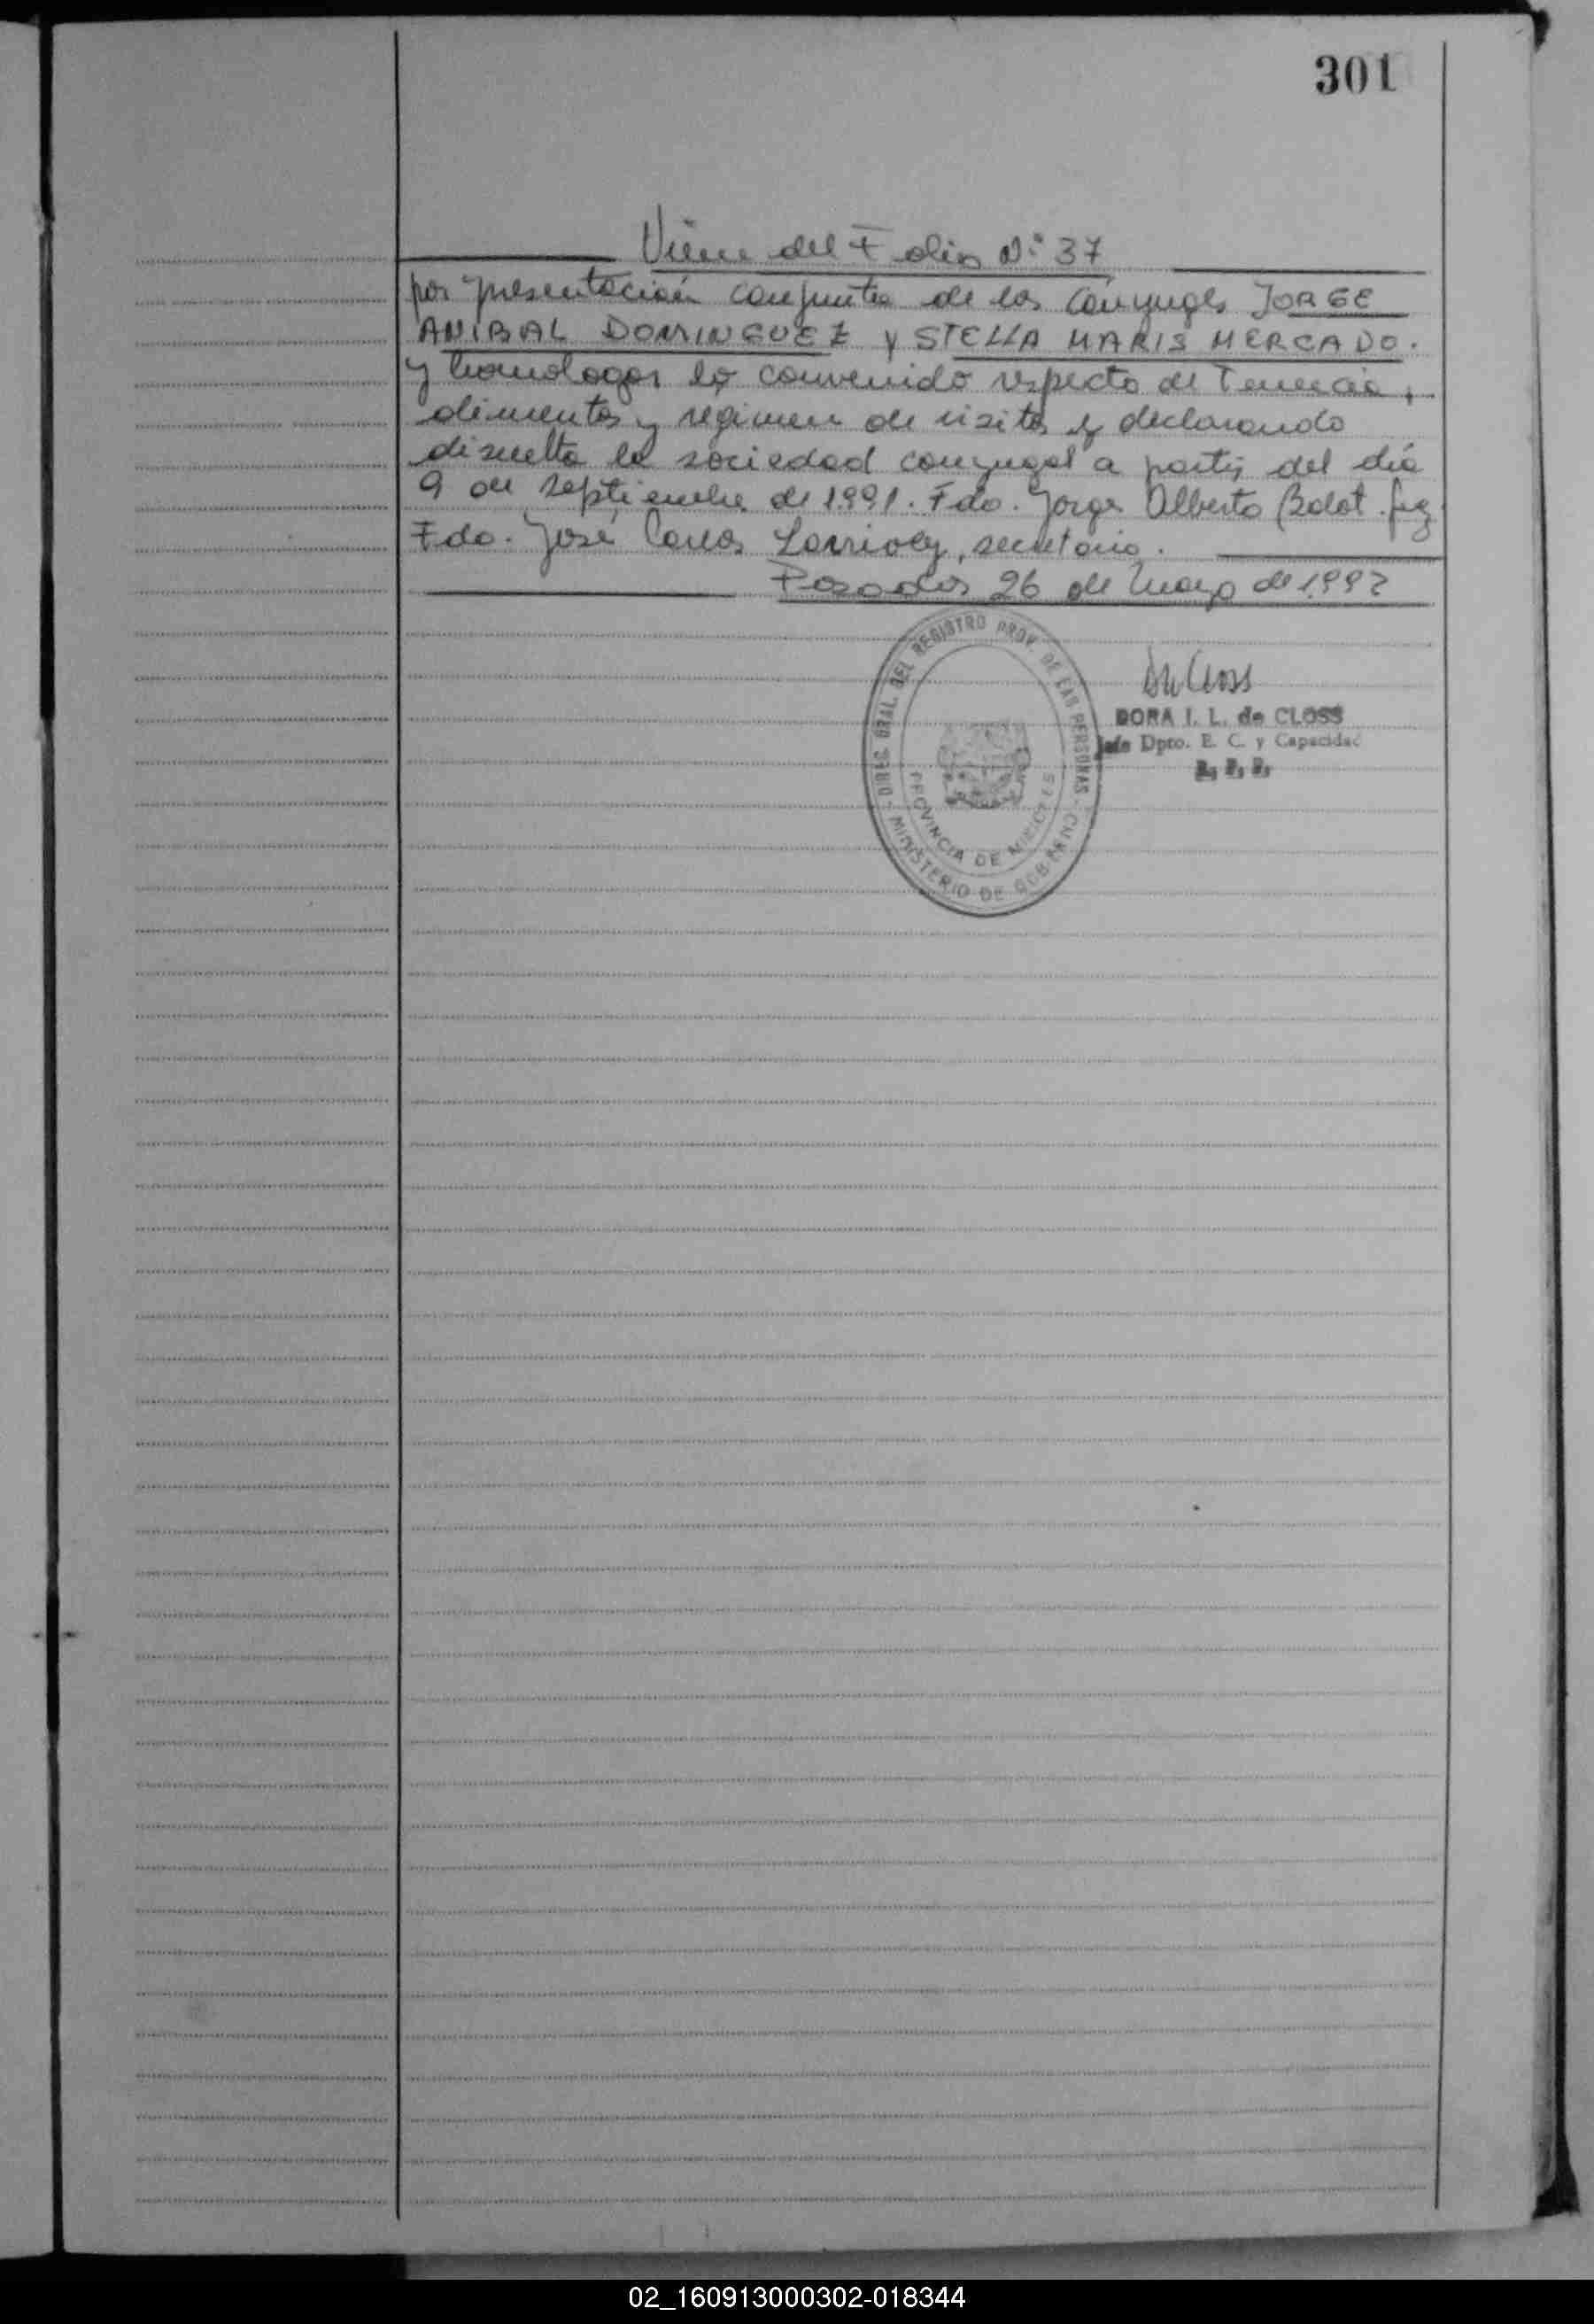 301
Viene del Folio N° 37
por presentación conjunta de los cónyuges JORGE
ANIBAL DOMINGUEZ Y STELLA MARIS MERCADO.
y homologar lo convenido respecto de Tenencia,
alimentos y regimen de visitas y declarando
disuelta la sociedad conyugal a partir del día
9 de septiembre de 1991. Fdo. Jorge Alberto juez.
Fdo. José Carlos secretario.
Posadas 26 de Marzo de 1992
DIREC. GRAL. DEL REGISTRO PROV. DE LAS PERSONAS
MINISTERIO DE GOBIERNO
PROVINCIA DE MISIONES
DORA I. L. de CLOSS
Jefe Dpto. E. C. y Capacidad
R. P. P.
02_160913000302-018344